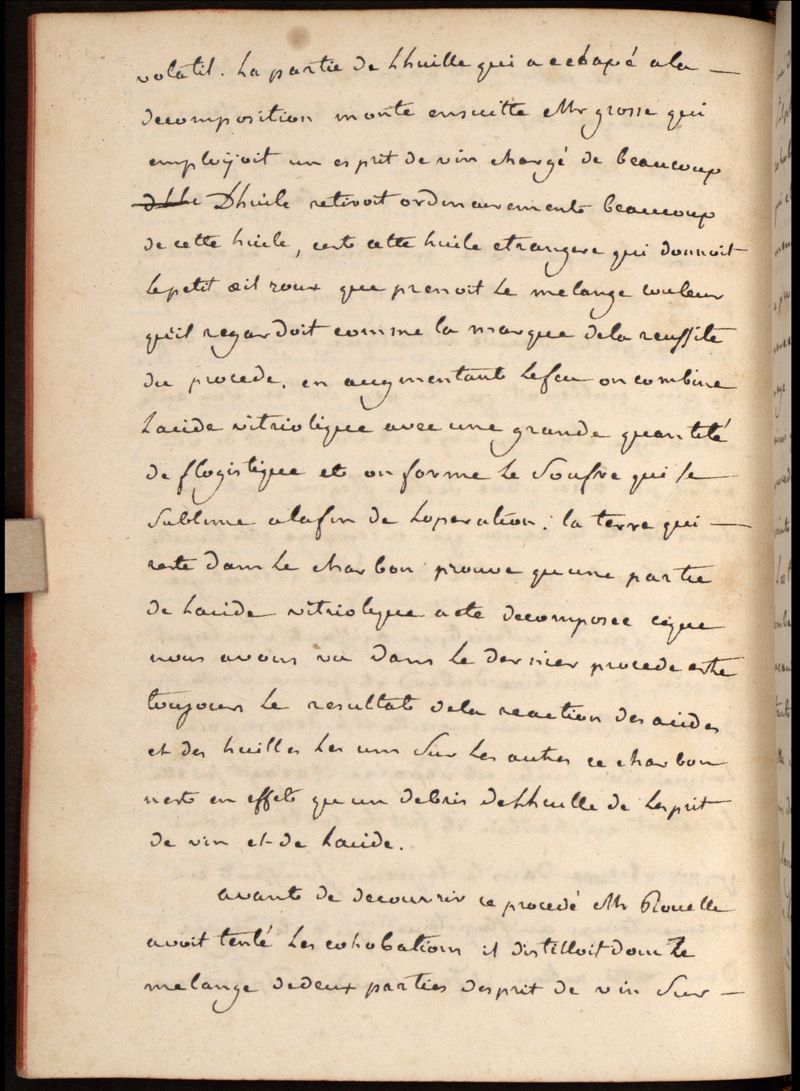 volatil. La partie de Lhuille qui a echapé ala —
decomposition monte ensuitte Mr grosse qui
emploijoit un esprit de vin chargé de beaucoup
Dhuile retiroit ordinairements beaucoup
de cette huile, cets cette huile etrangere qui donnoit
le petit œil roux que prenoit Le melange couleur
quil regardoit comme la marque dela reussite
du procede. en augmentants Lefeu on combine
Lacide vitriolique avec une grande quantité
de flogistique ets on forme Le Soufre qui se
Sublime alafin de Loperation. la terre qui —
reste dans Le charbon prouve quune partie
de Lacide vitriolique aete decomposee ceque
nous avons vu dans Le dernier procede este
toujours Le resultats dela reaction des acides
et des huilles Les uns Sur Les autres ce charbon
nests en effets quun debris de Lhuille de Lesprit
de vin et de Lacide.
avants de decouvrir ce procedé Mr Rouelle
avoit tenté Les cohobations il distilloit donc Le
melange dedeux parties desprit de vin Sur —